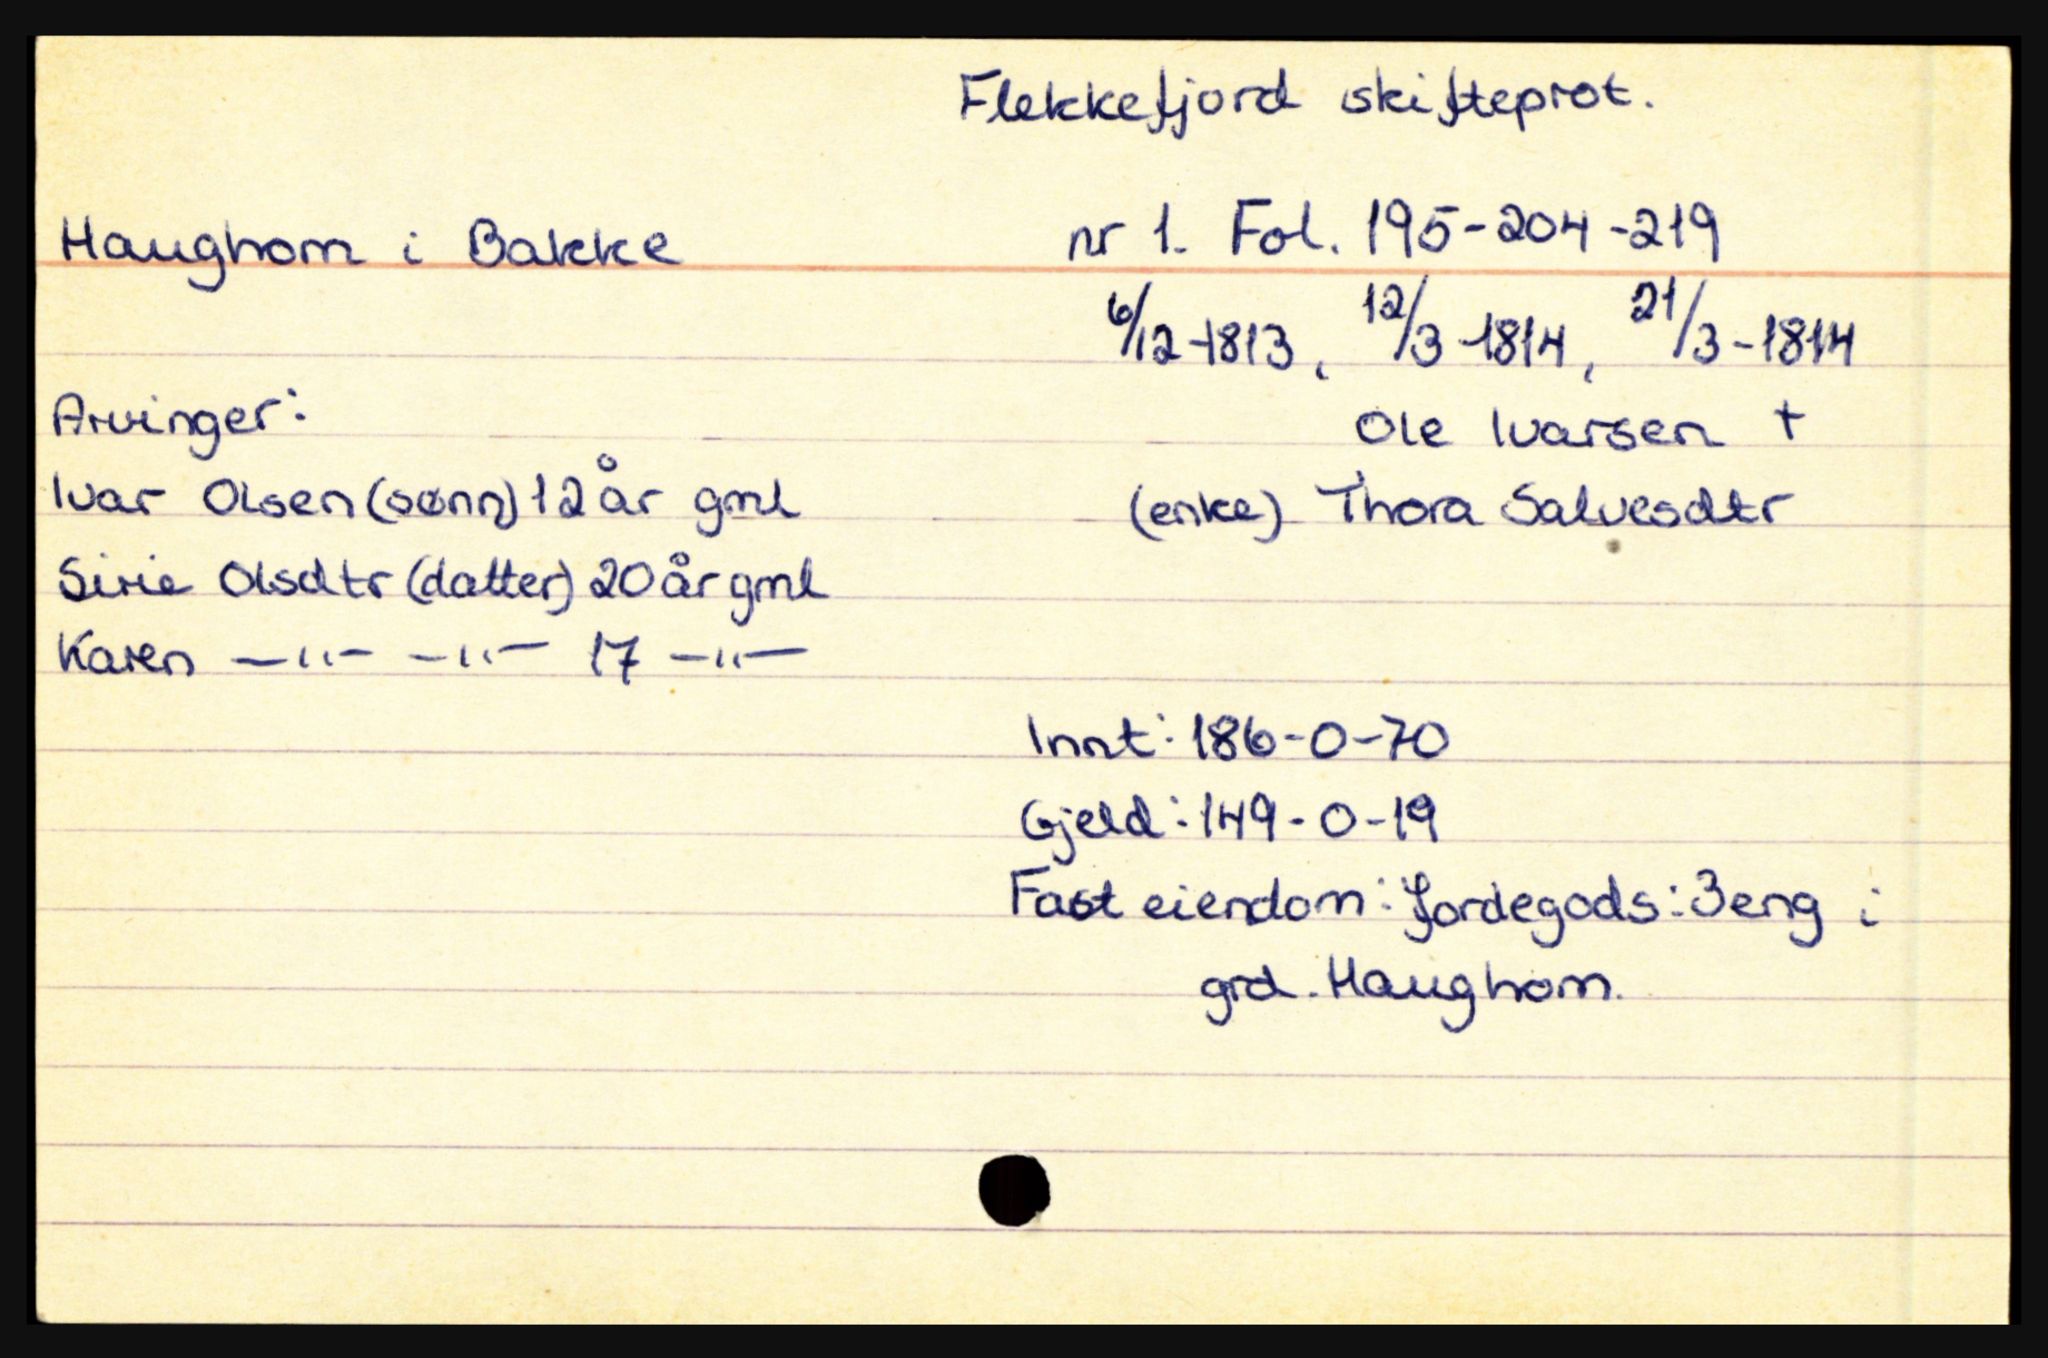 Flekkefjord skifteprot.
Haughom i Bakke nr 1. Fol. 195-204-219
6/12-1813, 12/3-1814, 21/3-1814
Arvinger: Ole Ivarsen +
Ivar Olsen (sønn) 12 år gml (enke) Thora Salvesdtr
Sirie Olsdtr (datter) 20 år gml
Karen —"— —"— 17 —"—
Innt: 186-0-70
Gjeld: 149-0-19
Fast eiendom: Jordegods: 3eng i
grd. Haughom.